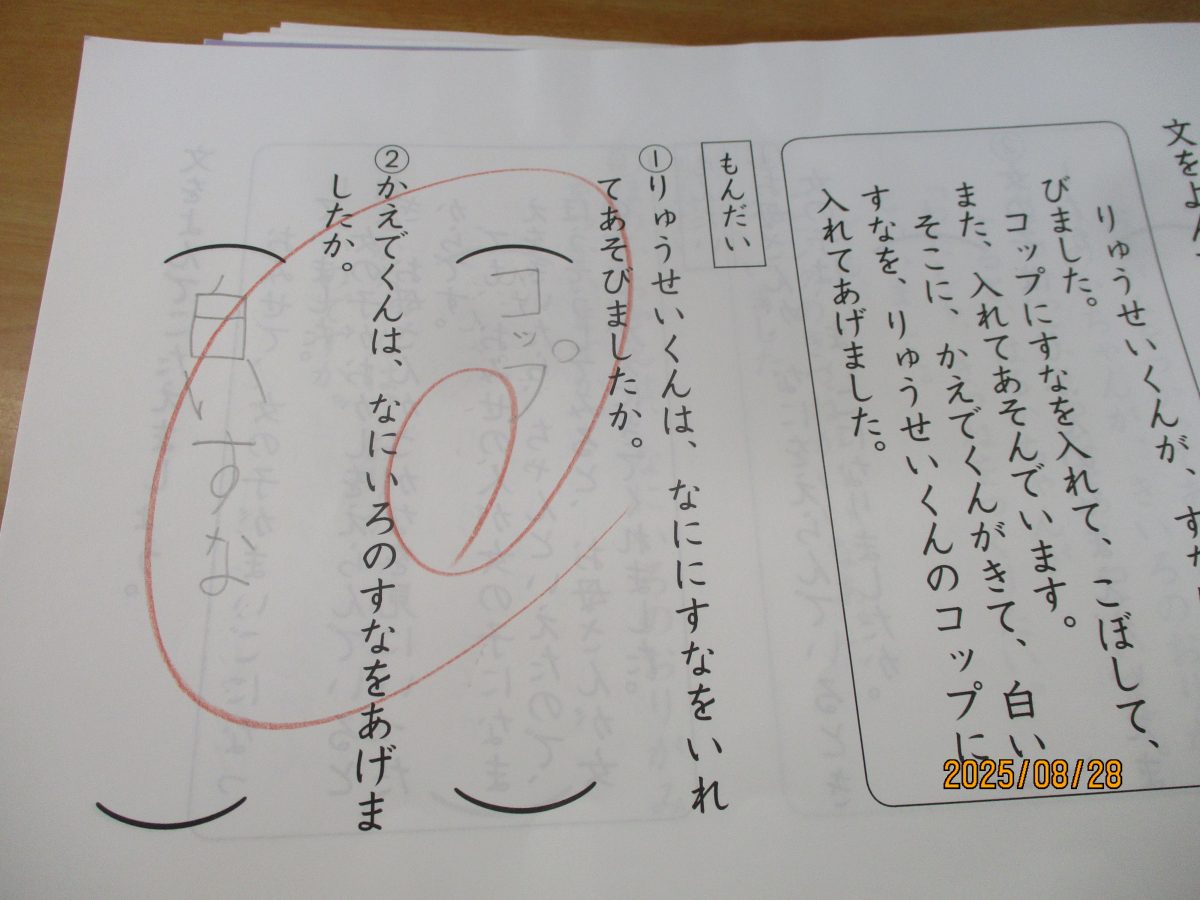 文をよん
りゅうせいくんが、すな
びました。
コップにすなを入れて、こぼして、
また、入れてあそんでいます。
そこに、かえでくんがきて、白い
すなを、りゅうせいくんのコップに
入れてあげました。
もんだい
①りゅうせいくんは、なににすなをいれ
てあそびましたか。
コップ
②かえでくんは、なにいろのすなをあげま
したか。
白いすな
2025/08/28